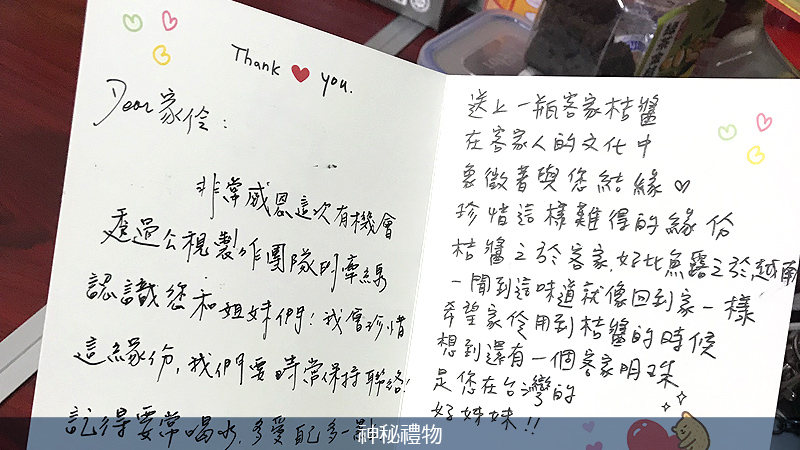 Thank you.
Dear 家伶：
非常感恩這次有機會
透過公視製作團隊的牽線
認識您和姐妹們！我會珍惜
這緣份，我們要時常保持聯絡！
記得要常喝水，多愛自己多一點
送上一瓶客家桔醬
在客家人的文化中
象徵著與您結緣
珍惜這樣難得的緣份
桔醬之於客家，好比魚露之於越南
一聞到這味道就像回到家一樣
希望家伶用到桔醬的時候
想到還有一個客家明珠
是您在台灣的
好妹妹!!
神秘禮物